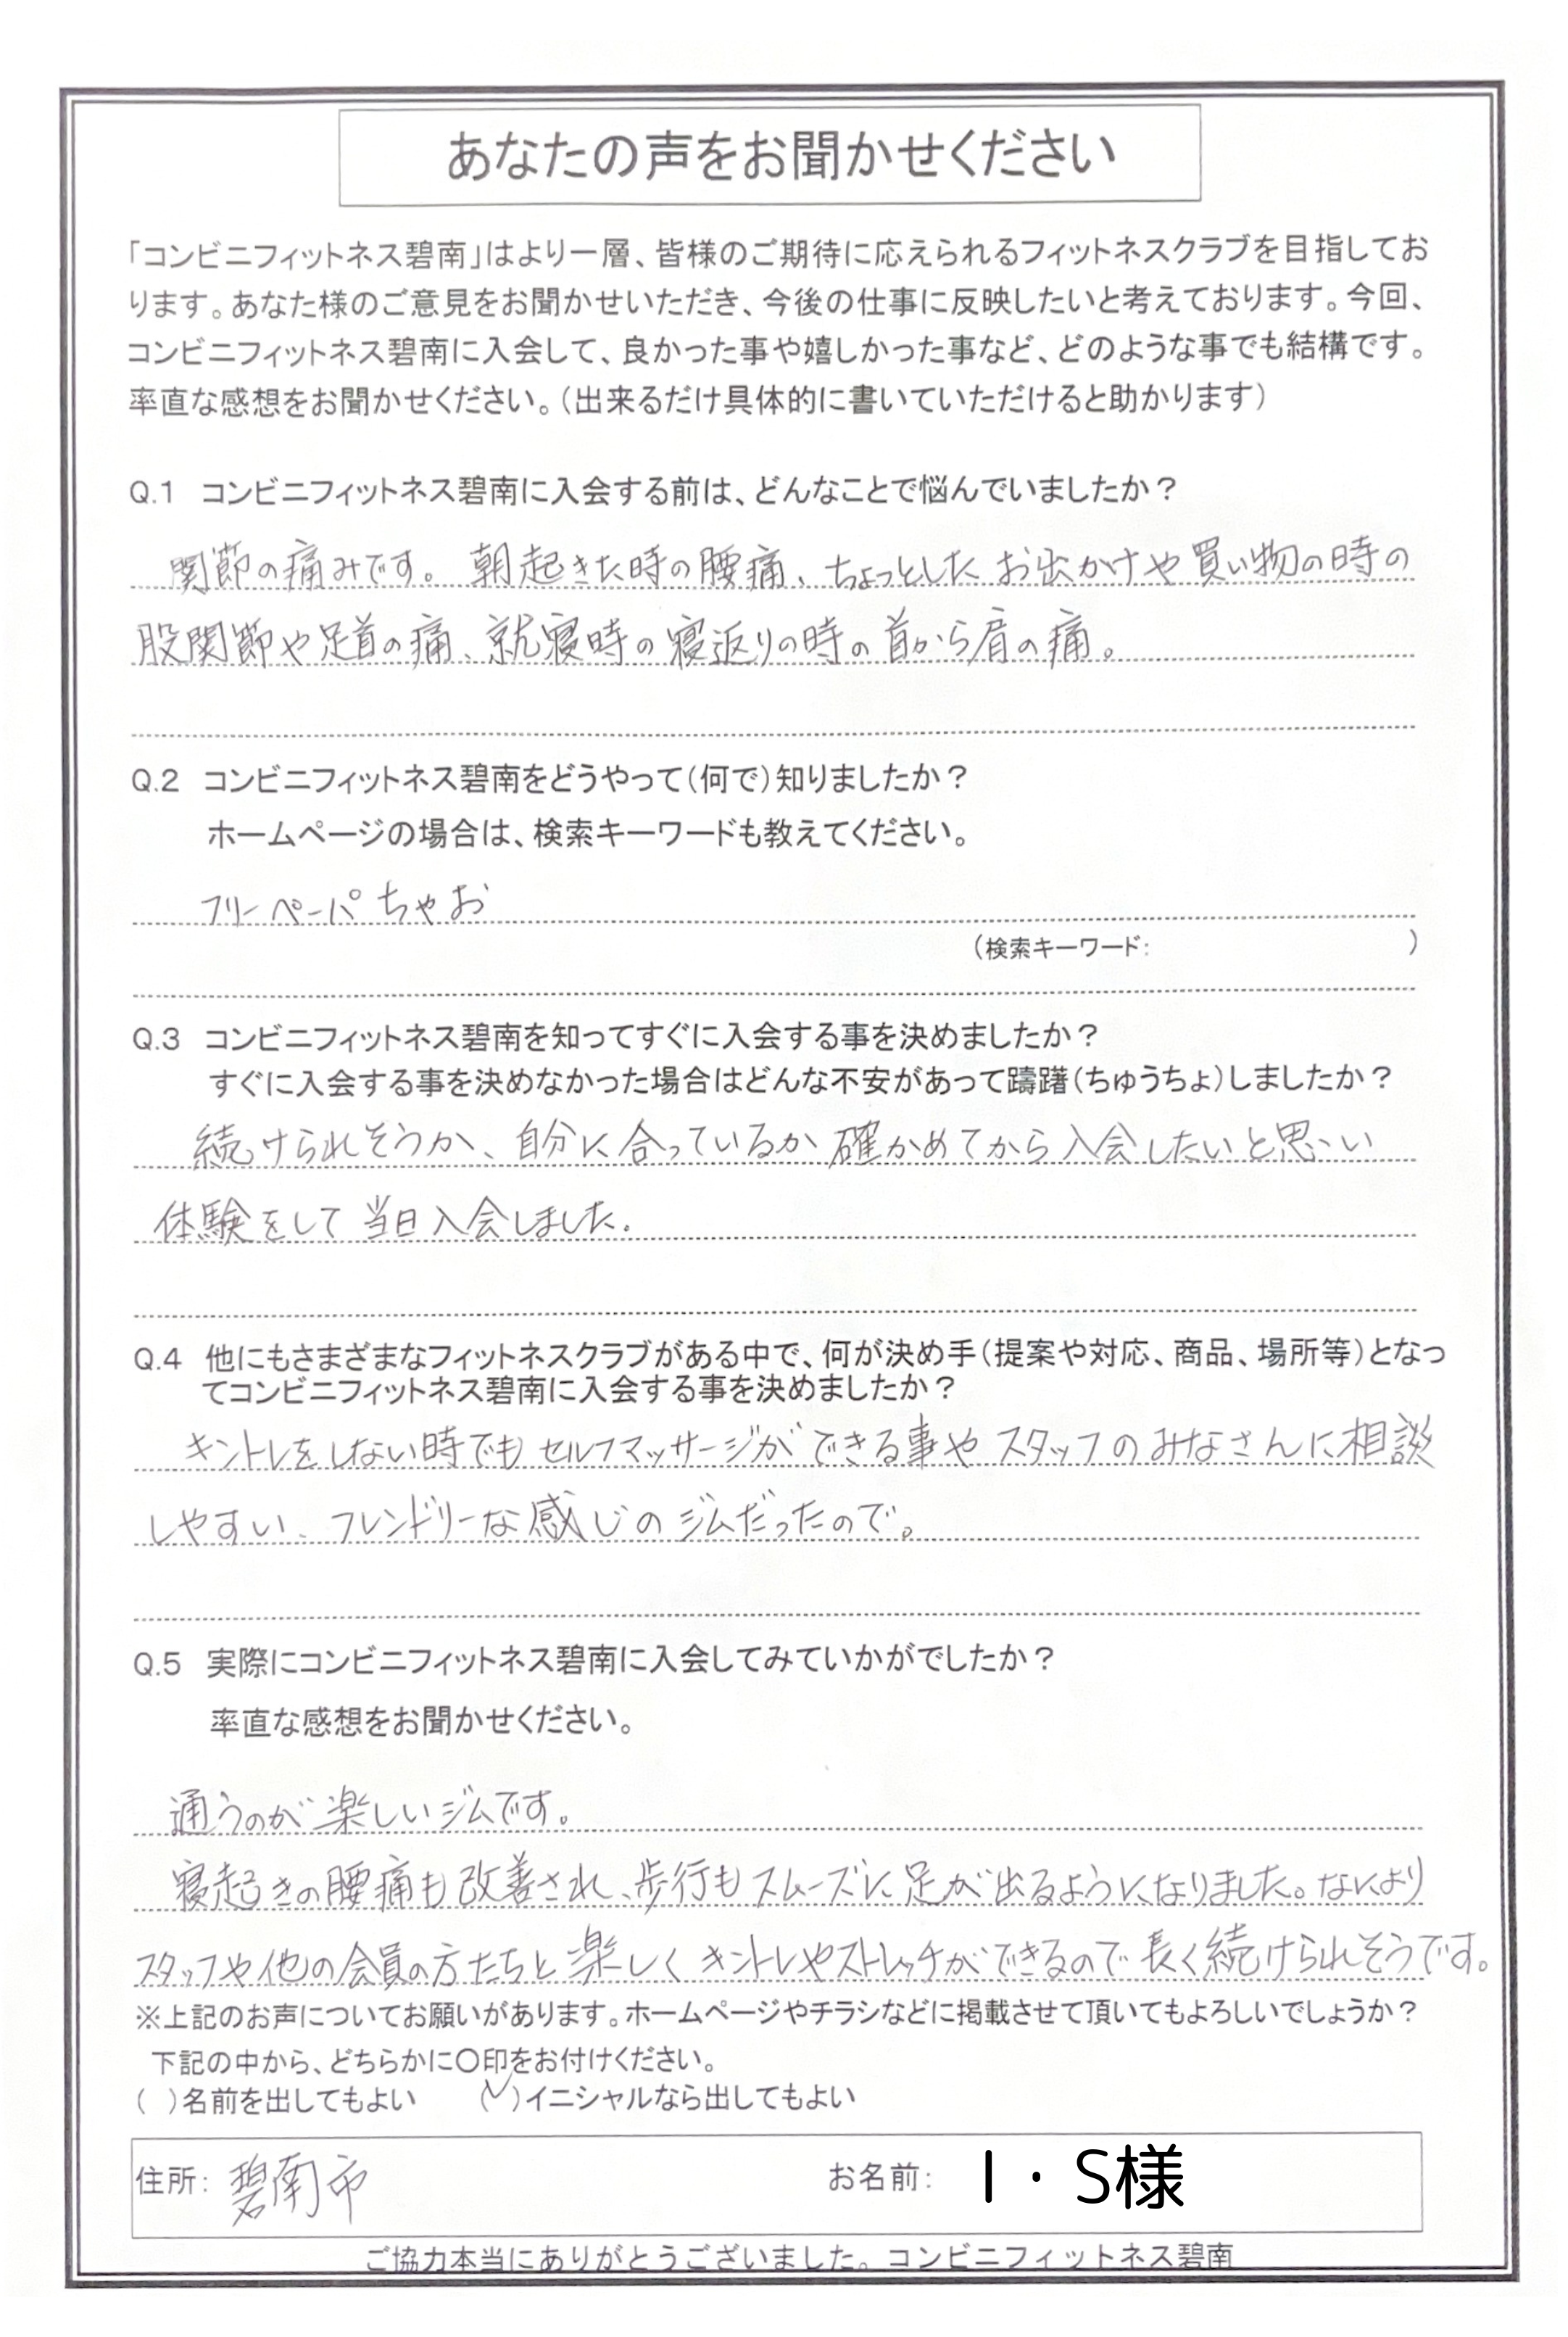 あなたの声をお聞かせください
「コンビニフィットネス碧南」はより一層、皆様のご期待に応えられるフィットネスクラブを目指してお
ります。あなた様のご意見をお聞かせいただき、今後の仕事に反映したいと考えております。今回、
コンビニフィットネス碧南に入会して、良かった事や嬉しかった事など、どのような事でも結構です。
率直な感想をお聞かせください。(出来るだけ具体的に書いていただけると助かります)
Q.1 コンビニフィットネス碧南に入会する前は、どんなことで悩んでいましたか？
関節の痛みです。朝起きた時の腰痛、ちょっとしたお出かけや買い物の時の
股関節や足首の痛、就寝時の寝返りの時の首から肩の痛。
Q.2 コンビニフィットネス碧南をどうやって(何で)知りましたか？
ホームページの場合は、検索キーワードも教えてください。
フリーペーパちゃお
(検索キーワード: )
Q.3 コンビニフィットネス碧南を知ってすぐに入会する事を決めましたか？
すぐに入会する事を決めなかった場合はどんな不安があって躊躇(ちゅうちょ)しましたか？
続けられそうか、自分に合っているか確かめてから入会したいと思い
体験をして当日入会しました。
Q.4 他にもさまざまなフィットネスクラブがある中で、何が決め手(提案や対応、商品、場所等)となっ
てコンビニフィットネス碧南に入会する事を決めましたか？
キントレをしない時でもセルフマッサージができる事やスタッフのみなさんに相談
しやすい、フレンドリーな感じのジムだったので。
Q.5 実際にコンビニフィットネス碧南に入会してみていかがでしたか？
率直な感想をお聞かせください。
通うのが楽しいジムです。
寝起きの腰痛も改善され、歩行もスムーズに足が出るようになりました。なにより
スタッフや他の会員の方たちと楽しくキントレやストレッチができるので長く続けられそうです。
※上記のお声についてお願いがあります。ホームページやチラシなどに掲載させて頂いてもよろしいでしょうか？
下記の中から、どちらかに〇印をお付けください。
( )名前を出してもよい (✓)イニシャルなら出してもよい
住所: 碧南市 お名前: I・S様
ご協力本当にありがとうございました。コンビニフィットネス碧南